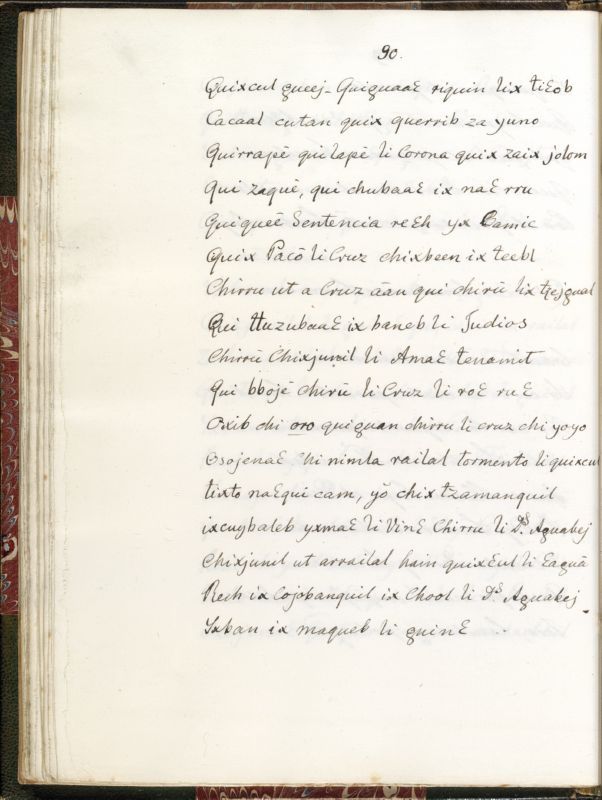 90.
Quixcul gueej - Quiguaaɛ riquin lix tiɛob
Cacaal cutan quix querrib za yuno
Quirrapē qui lapē li Corona quix zaix jolom
Qui zaquē, qui chubaaɛ ix naɛ rru
Quiqueē Sentencia reɛh yx Camic
Quix Pacō li Cruz chixbeen ix teebl
Chirru ut a Cruz āan qui chirū lix tzejgual
Qui ttuzubaaɛ ix baneb li Judios
Chirrū Chixjunil li Amaɛ tenamit
Qui bbojē chirū li Cruz li roɛ ruɛ
Oxib chi oro quiguan chirru li cruz chi yoyo
Osojenaɛ Chi nimla railal tormento li quixcul
tixto naɛqui cam, yō chix tzamanquil
ixcuybaleb yxmaɛ li Vinɛ Chirru li Ds. Aguabej
Chixjunil ut arrailal hain quixɛul li ɛaguā
Rech ix Cojobanquil ix Chool li Ds. Aguabej
Yxban ix maqueb li guinɛ